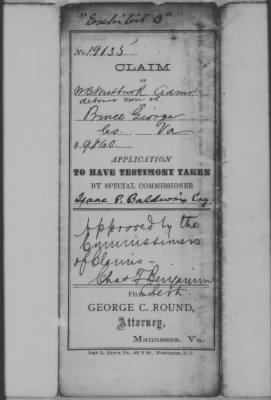 "Exhibit O"
No. 19135
CLAIM
OF
W B Westbrook Admr.
debonis non of
Prince George
Co. Va
APPLICATION
TO HAVE TESTIMONY TAKEN
BY SPECIAL COMMISSIONER
Isaac P. Baldwin Esq
Approved by the
Commissioners
of Claims -
Chas F Benjamin
Clerk
FILED BY
GEORGE C. ROUND,
Attorney,
Manassas, Va.